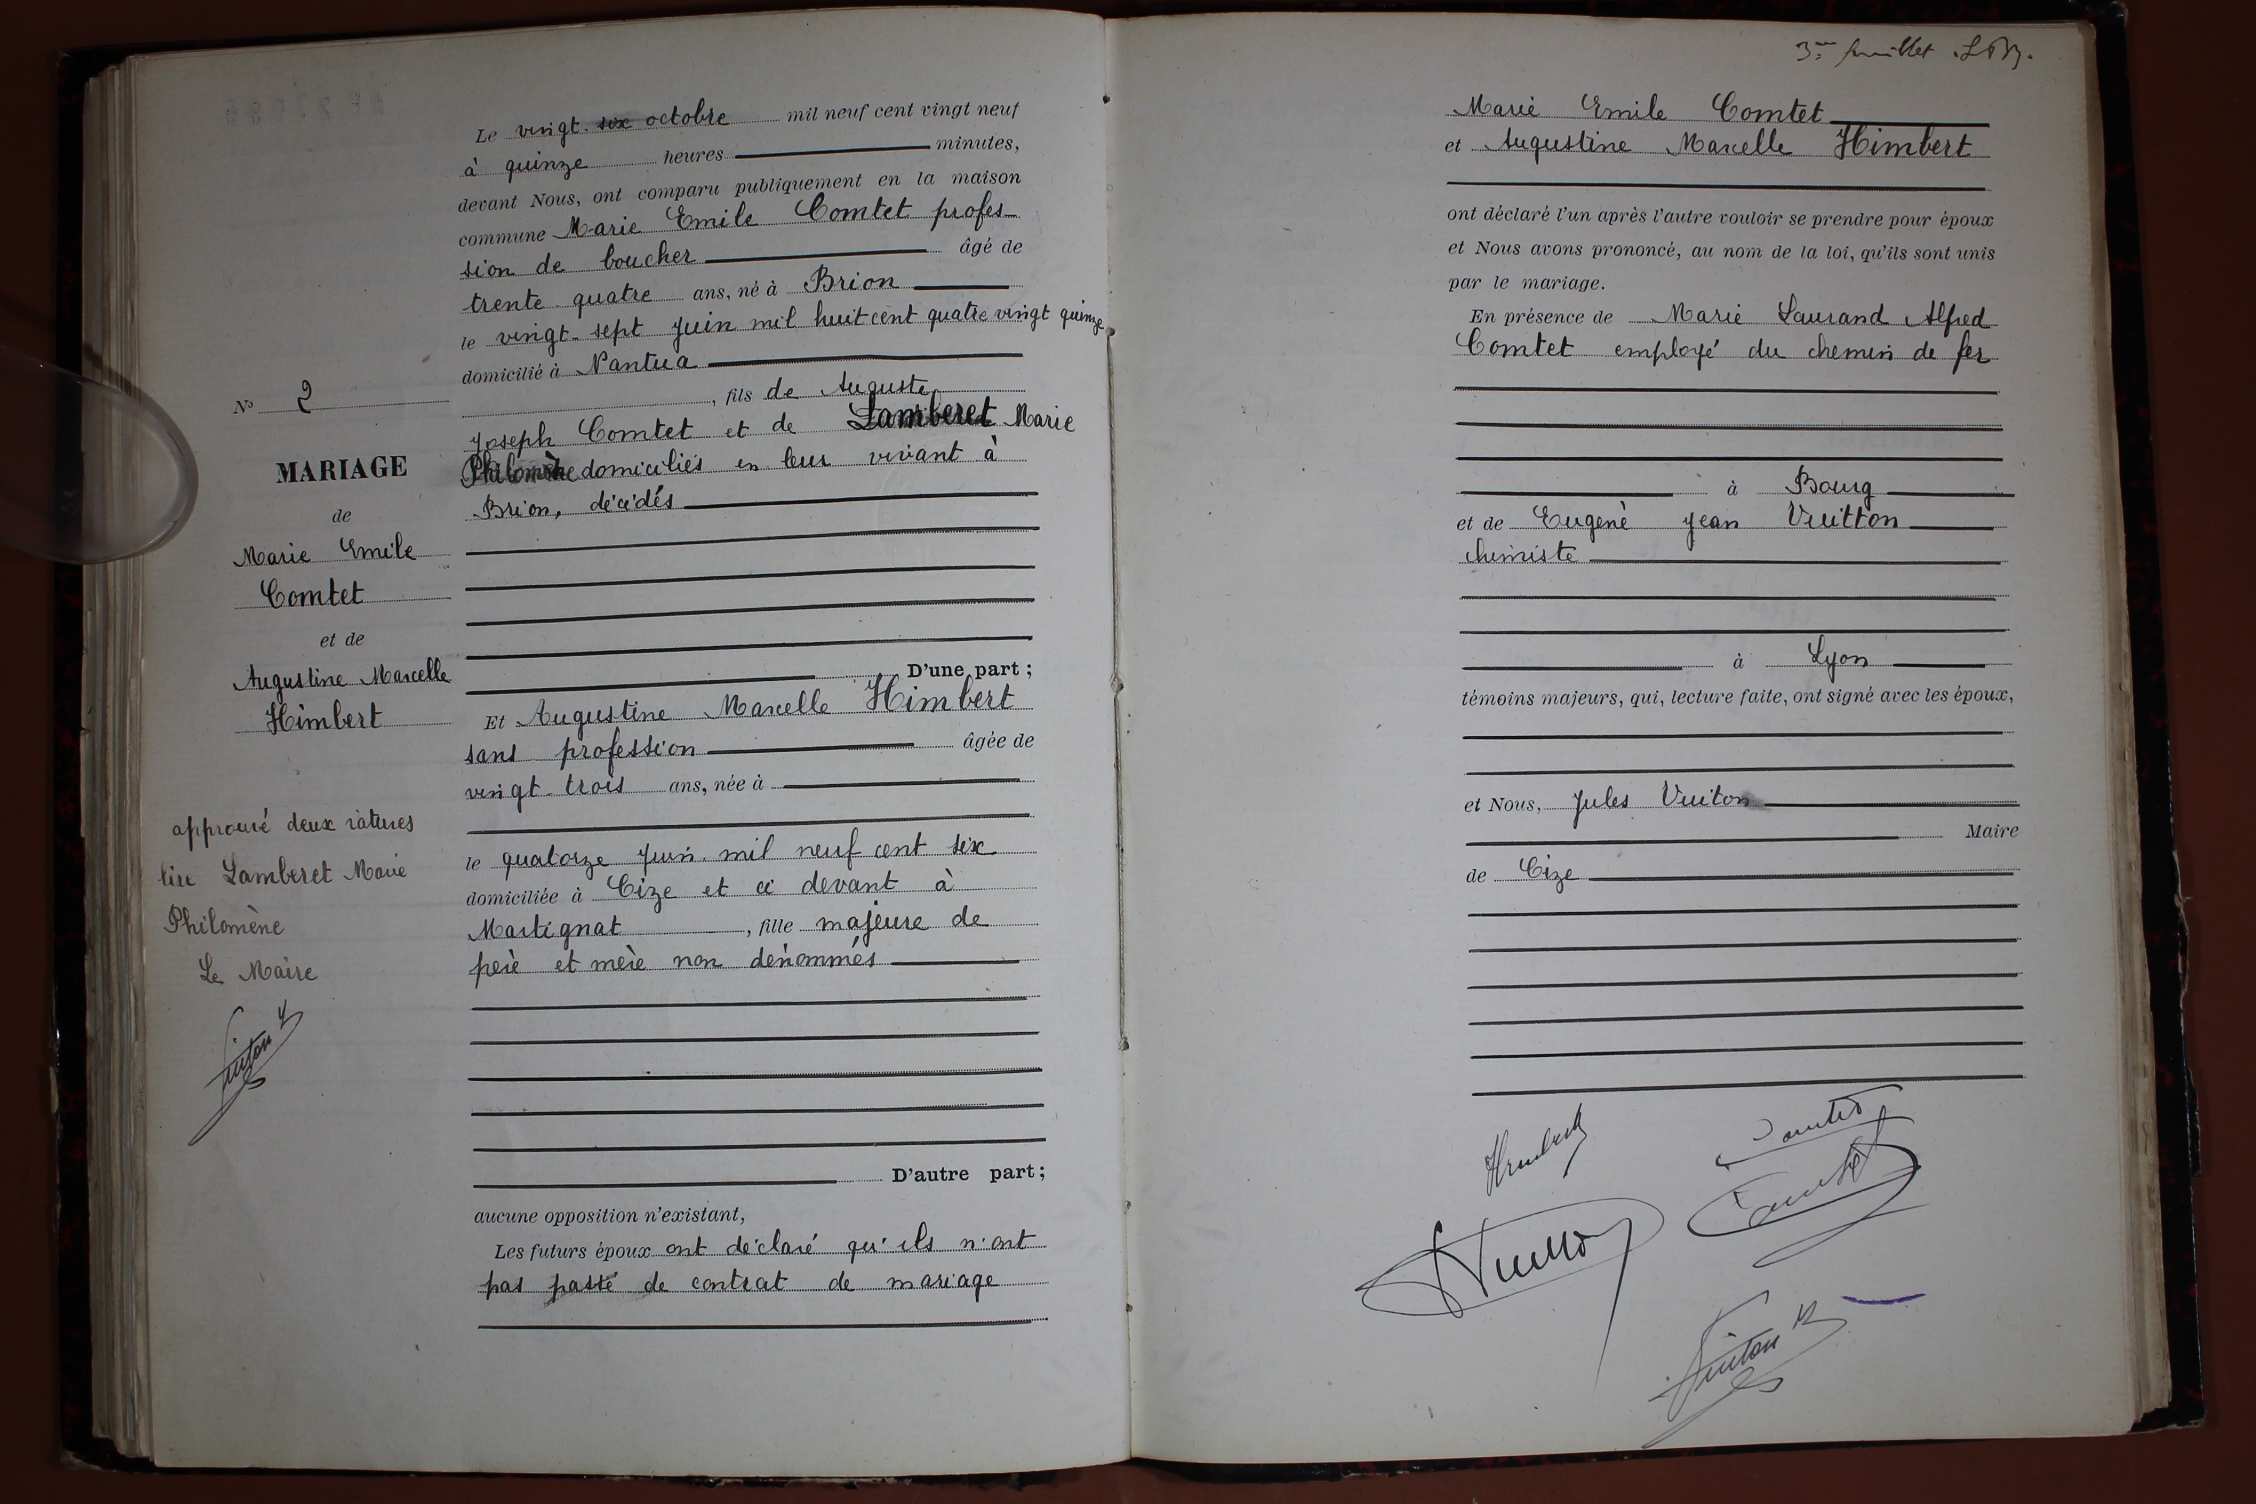 Le vingt-six octobre mil neuf cent vingt neuf
à quinze heures minutes,
devant Nous, ont comparu publiquement en la maison
commune Marie Emile Comtet profes-
sion de boucher âgé de
trente quatre ans, né à Brion
le vingt-sept juin mil huit cent quatre vingt quinze
domicilié à Nantua
, fils de Auguste
Joseph Comtet et de Lamberet Marie
Philomène domiciliés en leur vivant à
Brion, décédés
D'une part ;
Et Augustine Marcelle Himbert
sans profession âgée de
vingt-trois ans, née à
le quatorze juin mil neuf cent six
domiciliée à Cize et ci devant à
Martignat , fille majeure de
père et mère non dénommés
D'autre part ;
aucune opposition n'existant,
Les futurs époux ont déclaré qu'ils n'ont
pas passé de contrat de mariage
No 2
MARIAGE
de
Marie Emile
Comtet
et de
Augustine Marcelle
Himbert
approuvé deux ratures
lire Lamberet Marie
Philomène
Le Maire
Vuiton
3me feuillet
Marie Emile Comtet
et Augustine Marcelle Himbert
ont déclaré l'un après l'autre vouloir se prendre pour époux
et Nous avons prononcé, au nom de la loi, qu'ils sont unis
par le mariage.
En présence de Marie Laurand Alfred
Comtet employé du chemin de fer
à Bourg
et de Eugène Jean Vuitton
chimiste
à Lyon
témoins majeurs, qui, lecture faite, ont signé avec les époux,
et Nous, Jules Vuiton
Maire
de Cize
Himbert
Comtet
Comtet
Vuitton
Vuiton